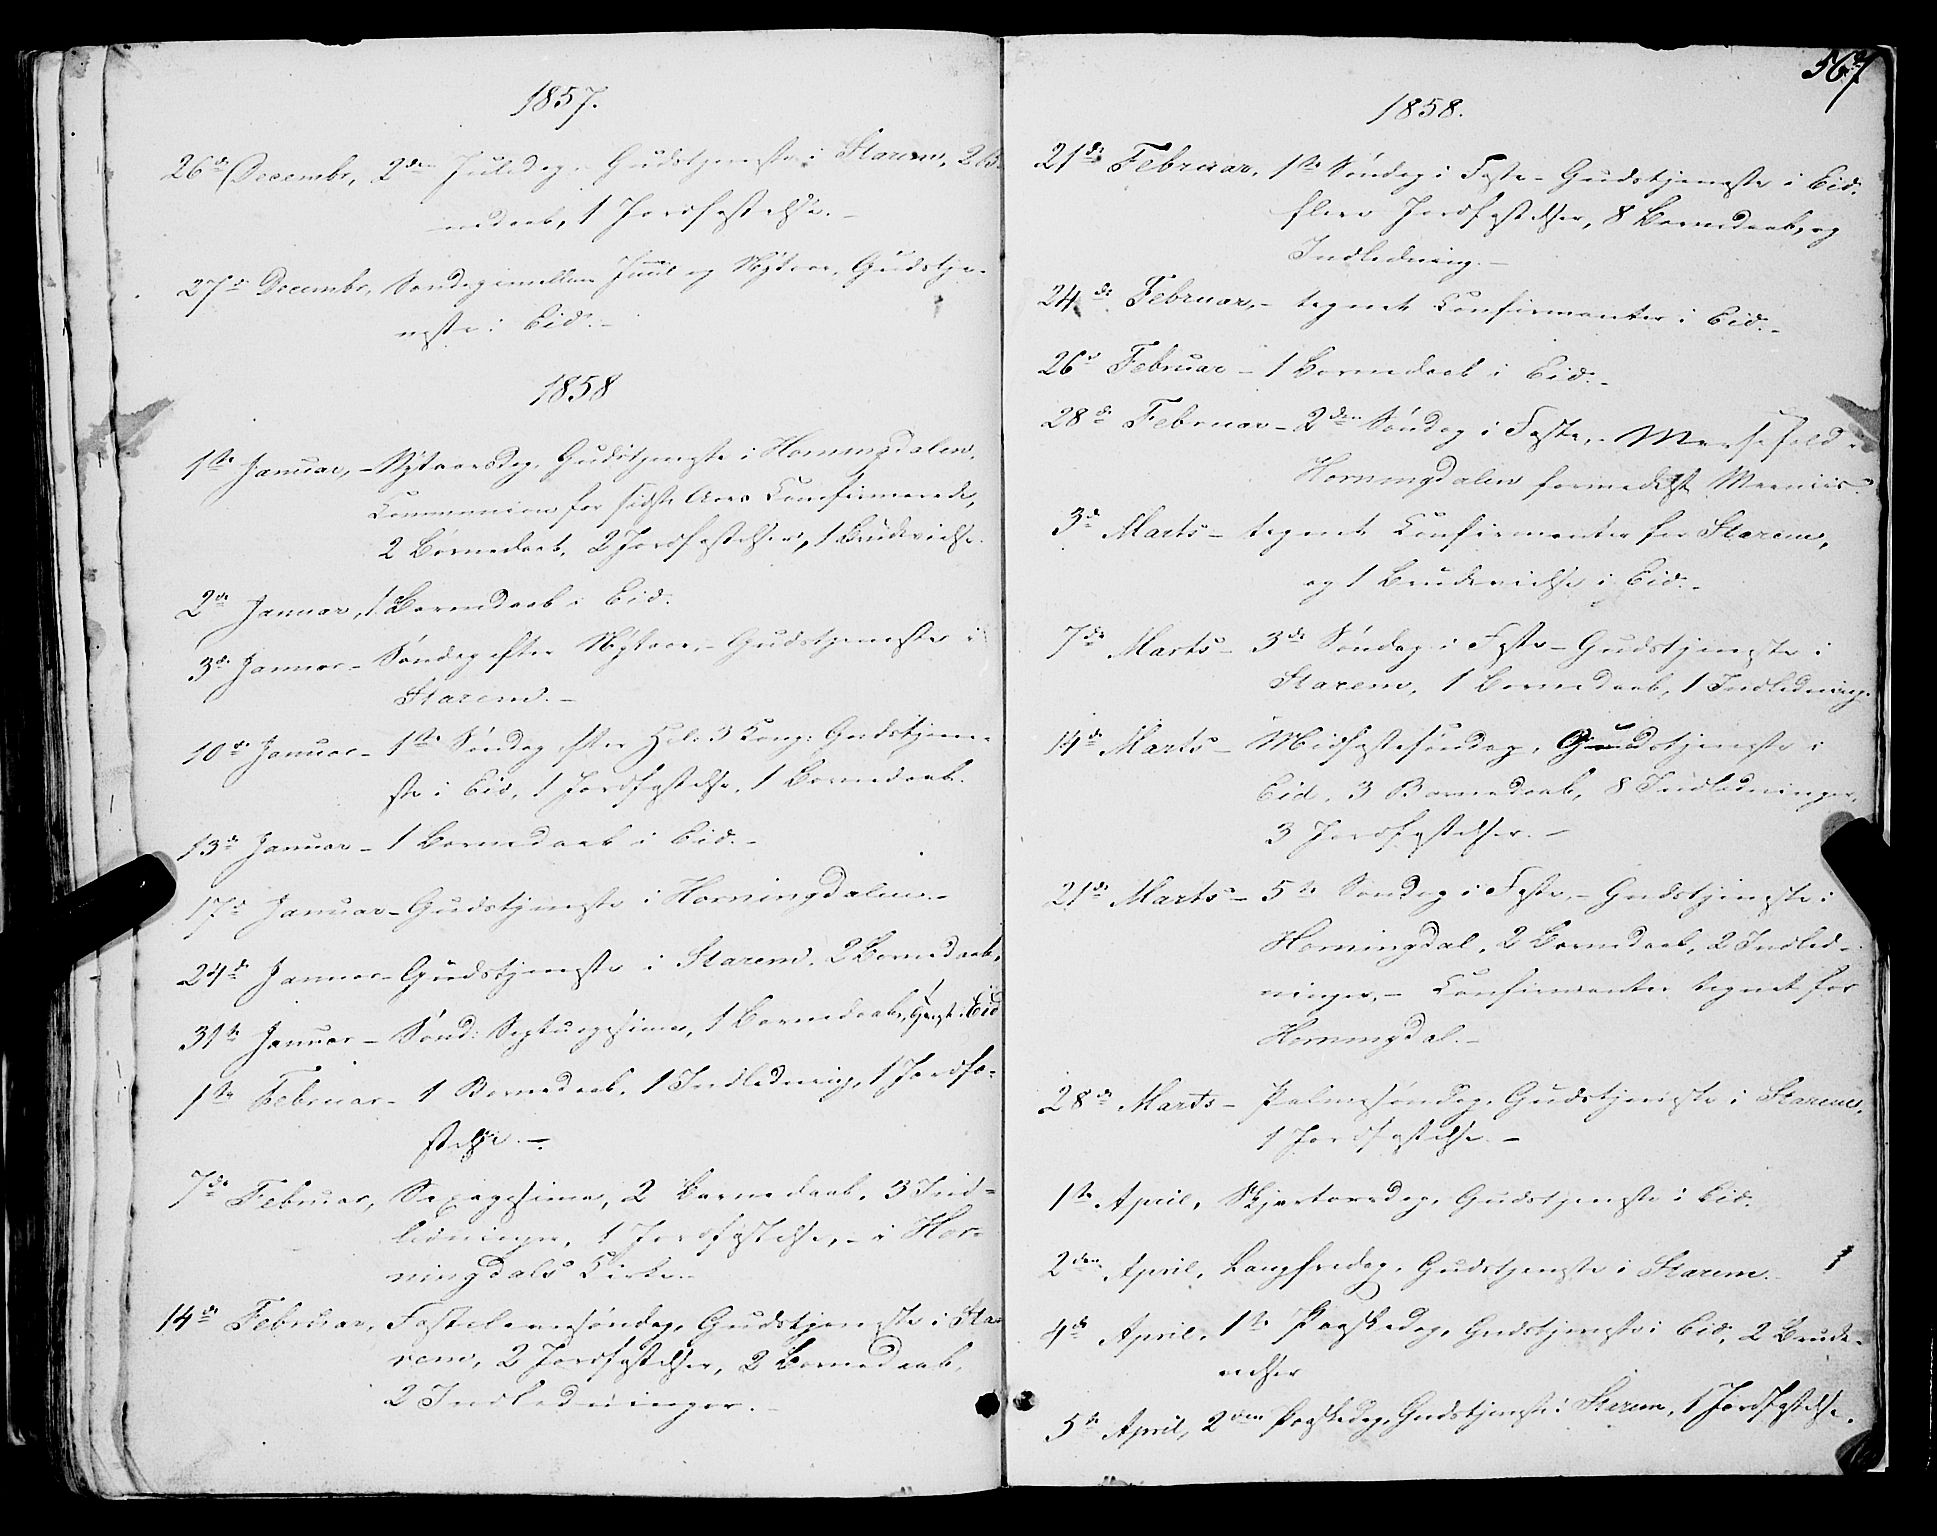 1857.
26de Decembr, 2den Juledag. Gudstjeneste i Starem, 2 Bør-
nedaab, 1 Jordfæstelse. –
27de Decembr, Søndag imellem Juul og Nytaar, Gudstje-
neste i Eid. –
1858
1ste Januar, – Nytaarsdag, Gudstjeneste i Horningdalen.
Communion for sidste Aars Confirmerede,
2 Børnedaab, 2 Jordfæstelser, 1 Brudevielse.
2de Januar, 1 Barnedaab i Eid.
3de Januar – Søndag efter Nytaar, – Gudstjeneste i
Starem. –
10de Januar – 1ste Søndag efter Hel: 3 Kong: Gudstjene-
ste i Eid, 1 Jordfæstelse, 1 Barnedaab.
13de Januar – 1 Barnedaab i Eid. –
17de Januar – Gudstjeneste i Horningdalen. –
24de Januar – Gudstjeneste i Starem. 2 Børnedaab.
31te Januar – Sønd: Septuagesima, 1 Barnedaab, Gtjenste i Eid
1ste Februar – 1 Barnedaab, 1 Indledning, 1 Jordfæ-
stelse. –
7de Februar, Sexagesima, 2 Børnedaab, 3 Ind-
ledninger, 1 Jordfæstelse, – i Hor-
ningdals Kirke. –
14de Februar, Fastelavnssøndag, Gudstjeneste i Sta-
rem, 2 Jordfæstelser, 2 Børnedaab,
2 Indledninger. –
567
1858.
21de Februar, 1ste Søndag i Faste – Gudstjeneste i Eid.
flere Jordfæstelser, 8 Børnedaab, og
Indledning. –
24de Februar, – tegnet Confirmanter i Eid. –
26de Februar – 1 Barnedaab i Eid. –
28de Februar – 2den Søndag i Faste, – Messefald i
Horningdalen formedelst Meeniis.
3de Marts – tegnet Confirmanter for Starem,
og 1 Brudevielse i Eid. –
7de Marts – 3de Søndag i Faste – Gudstjeneste i
Starem, 1 Barnedaab, 1 Indledning.
14de Marts – Midfastesøndag, Gudstjeneste i
Eid, 3 Børnedaab, 8 Indledninger,
3 Jordfæstelser. –
21de Marts – 5te Søndag i Faste, – Gudstjeneste i
Horningdal, 2 Børnedaab, 2 Indled-
ninger, – Confirmanter tegnet for
Horningdal. –
28de Marts – Palmesøndag, Gudstjeneste i Starem,
1 Jordfæstelse. –
1ste April, Skjærtorsdag, Gudstjeneste i Eid.
2den April, Langfredag, Gudstjeneste i Starem. –
4de April, 1ste Paaskedag, Gudstjeneste i Eid, 2 Brude-
vielser
5te April, 2den Paaskedag, Gudstjeneste i Starem, 1 Jordfæstelse.